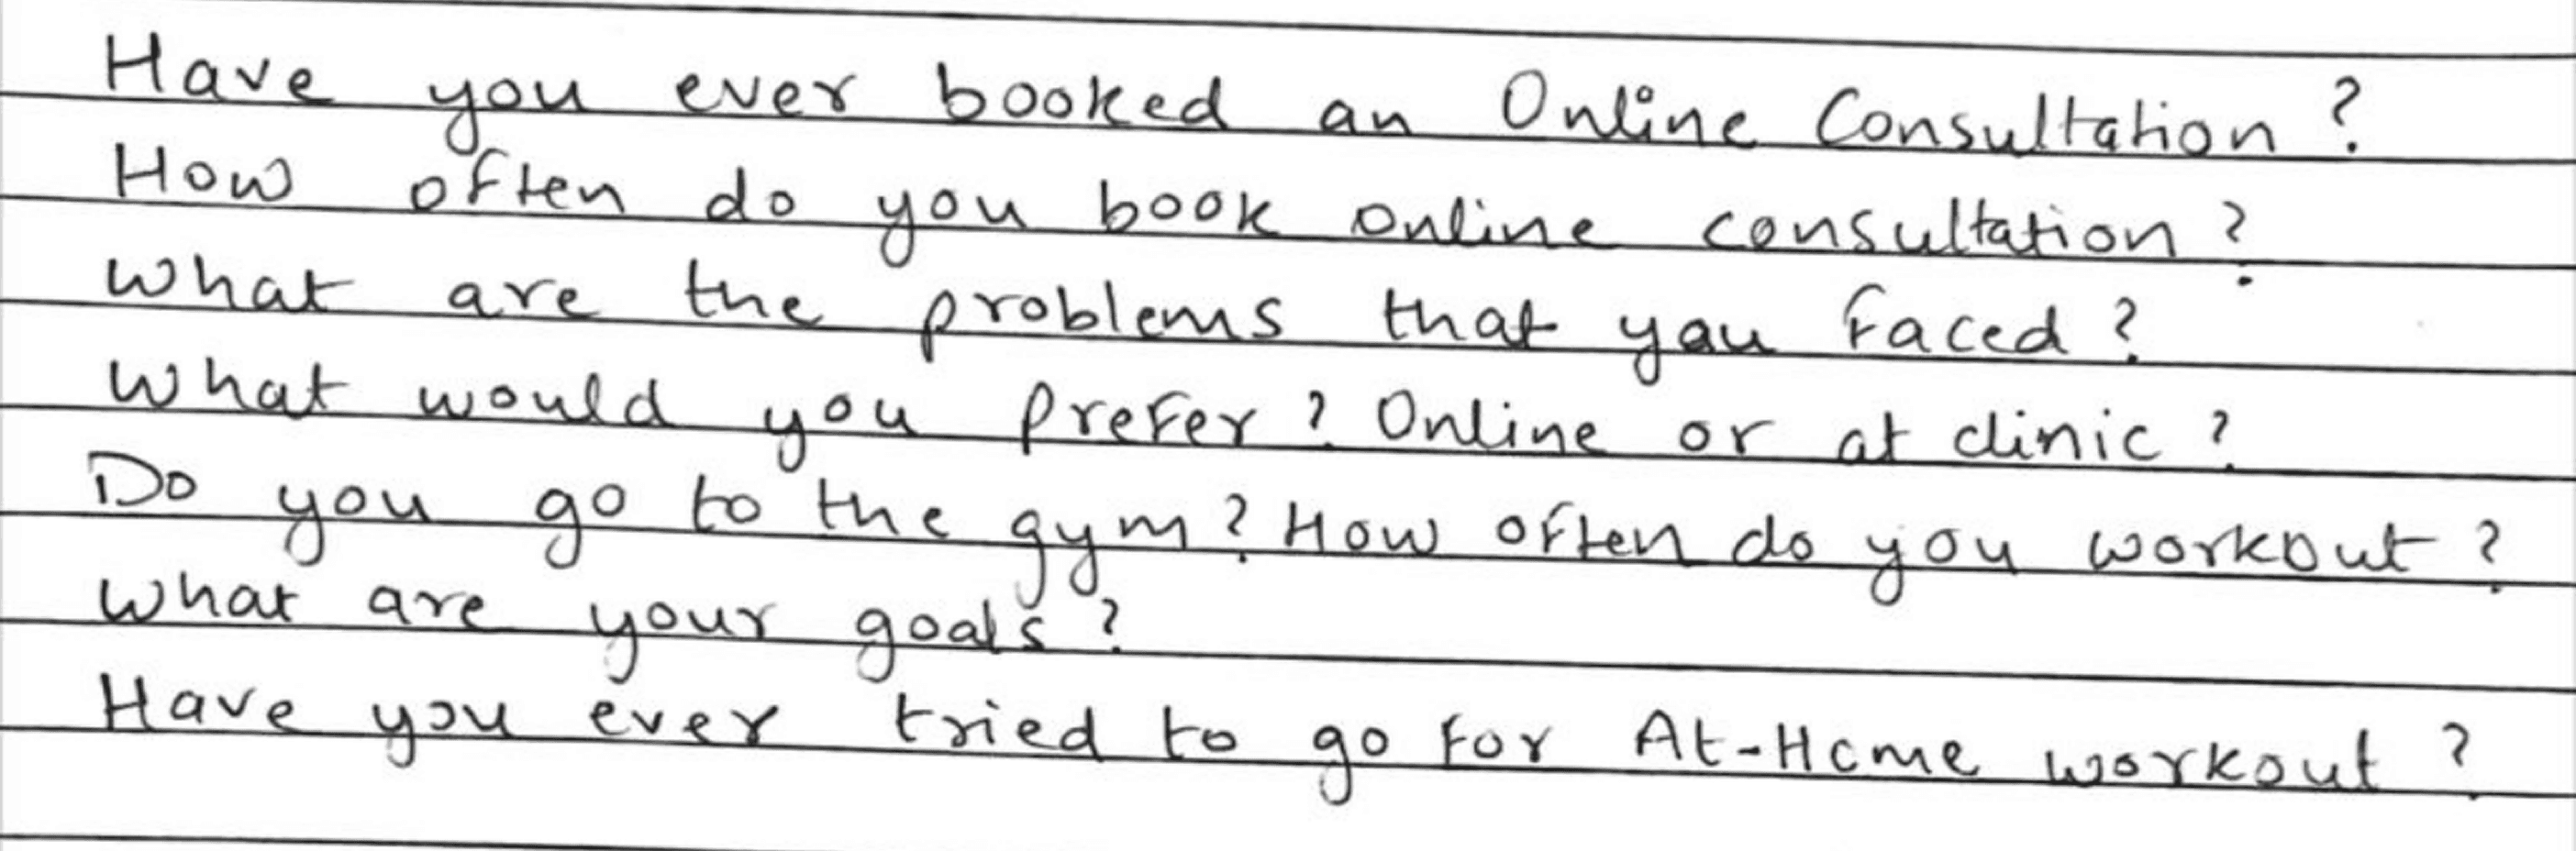 Have you ever booked an Online Consultation ?
How often do you book online consultation ?
What are the problems that you faced ?
What would you prefer ? Online or at clinic ?
Do you go to the gym ? How often do you workout ?
What are your goals ?
Have you ever tried to go for At-Home workout ?